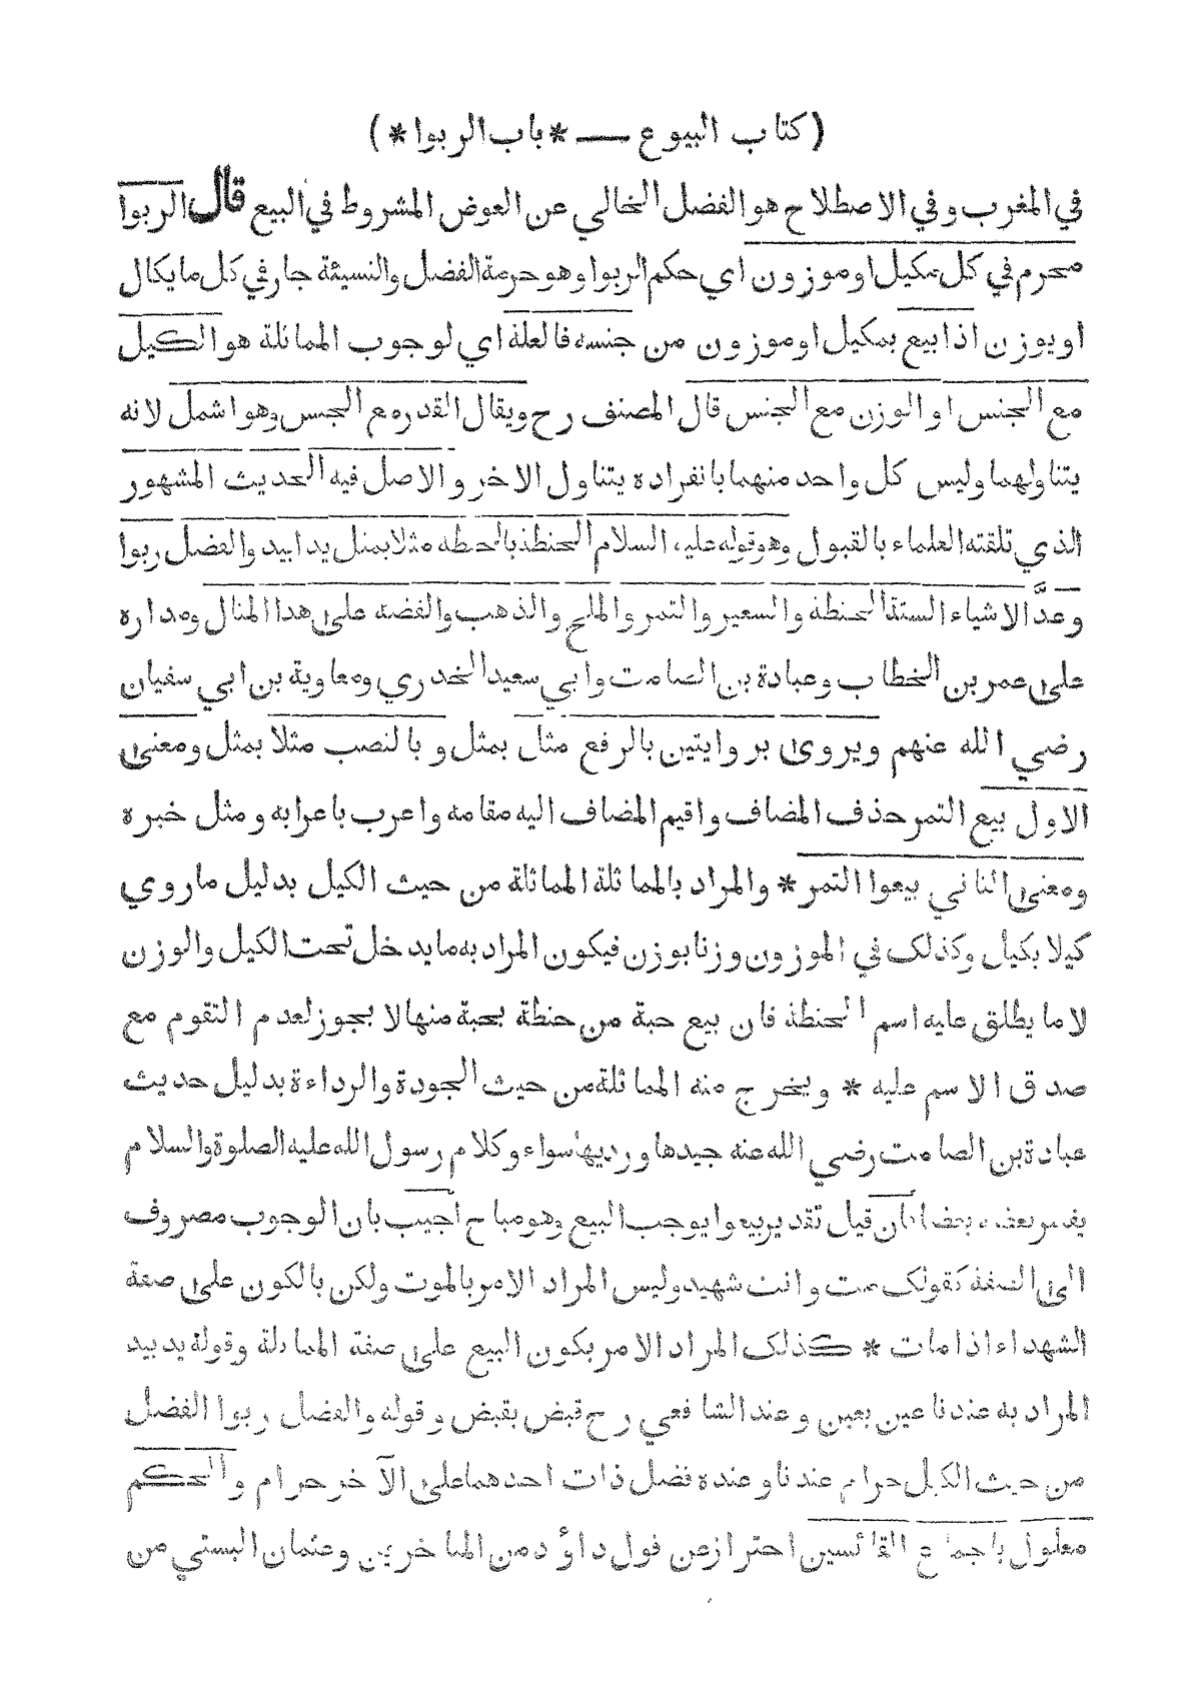 (كتاب البيوع — *باب الربوا*)
في المغرب وفي الاصطلاح هو الفضل الخالي عن العوض المشروط في البيع قال الربوا
محرم في كل مكيل او موزون اي حكم الربوا وهو حرمة الفضل والنسيئة جار في كل ما يكال
او يوزن اذا بيع بمكيل او موزون من جنسه فالعلة اي لوجوب المماثلة هو الكيل
مع الجنس او الوزن مع الجنس قال المصنف رح ويقال القدر مع الجنس وهو اشمل لانه
يتناولهما وليس كل واحد منهما بانفراده يتناول الاخر والاصل فيه الحديث المشهور
الذي تلقته العلماء بالقبول وهو قوله عليه السلام الحنطة بالحنطه مثلا بمثل يدا بيد والفضل ربوا
وعدَّ الاشياء الستة الحنطة والشعير والتمر والملح والذهب والفضه على هذا المثال ومداره
على عمر بن الخطاب وعبادة بن الصامت وابي سعيد الخدري ومعاوية بن ابي سفيان
رضي الله عنهم ويروى بروايتين بالرفع مثل بمثل وبالنصب مثلا بمثل ومعنى
الاول بيع التمر حذف المضاف واقيم المضاف اليه مقامه واعرب باعرابه ومثل خبره
ومعنى الثاني بيعوا التمر * والمراد بالمماثلة المماثلة من حيث الكيل بدليل ما روي
كيلا بكيل وكذلك في الموزون وزنا بوزن فيكون المراد به ما يدخل تحت الكيل والوزن
لا ما يطلق عليه اسم الحنطة فان بيع حبة من حنطة بحبة منها لا يجوز لعدم التقوم مع
صدق الاسم عليه * ويخرج منه المماثلة من حيث الجودة والرداءة بدليل حديث
عبادة بن الصامت رضي الله عنه جيدها ورديها سواء وكلام رسول الله عليه الصلوة والسلام
يفسر بعضه بعضا فان قيل تقدير بيعوا يوجب البيع وهو مباح اجيب بان الوجوب مصروف
الى الصفة كقولك مت وانت شهيد وليس المراد الامر بالموت ولكن بالكون على صفة
الشهداء اذا مات * كذلك المراد الامر بكون البيع على صفة المماثلة وقوله يد بيد
المراد به عندنا عين بعين وعند الشافعي رح قبض بقبض وقوله والفضل ربوا الفضل
من حيث الكيل حرام عندنا وعنده فضل ذات احدهما على الآخر حرام والحكم
معلول باجماع القائسين احتراز عن قول داؤد من المتاخرين وعثمان البستي من